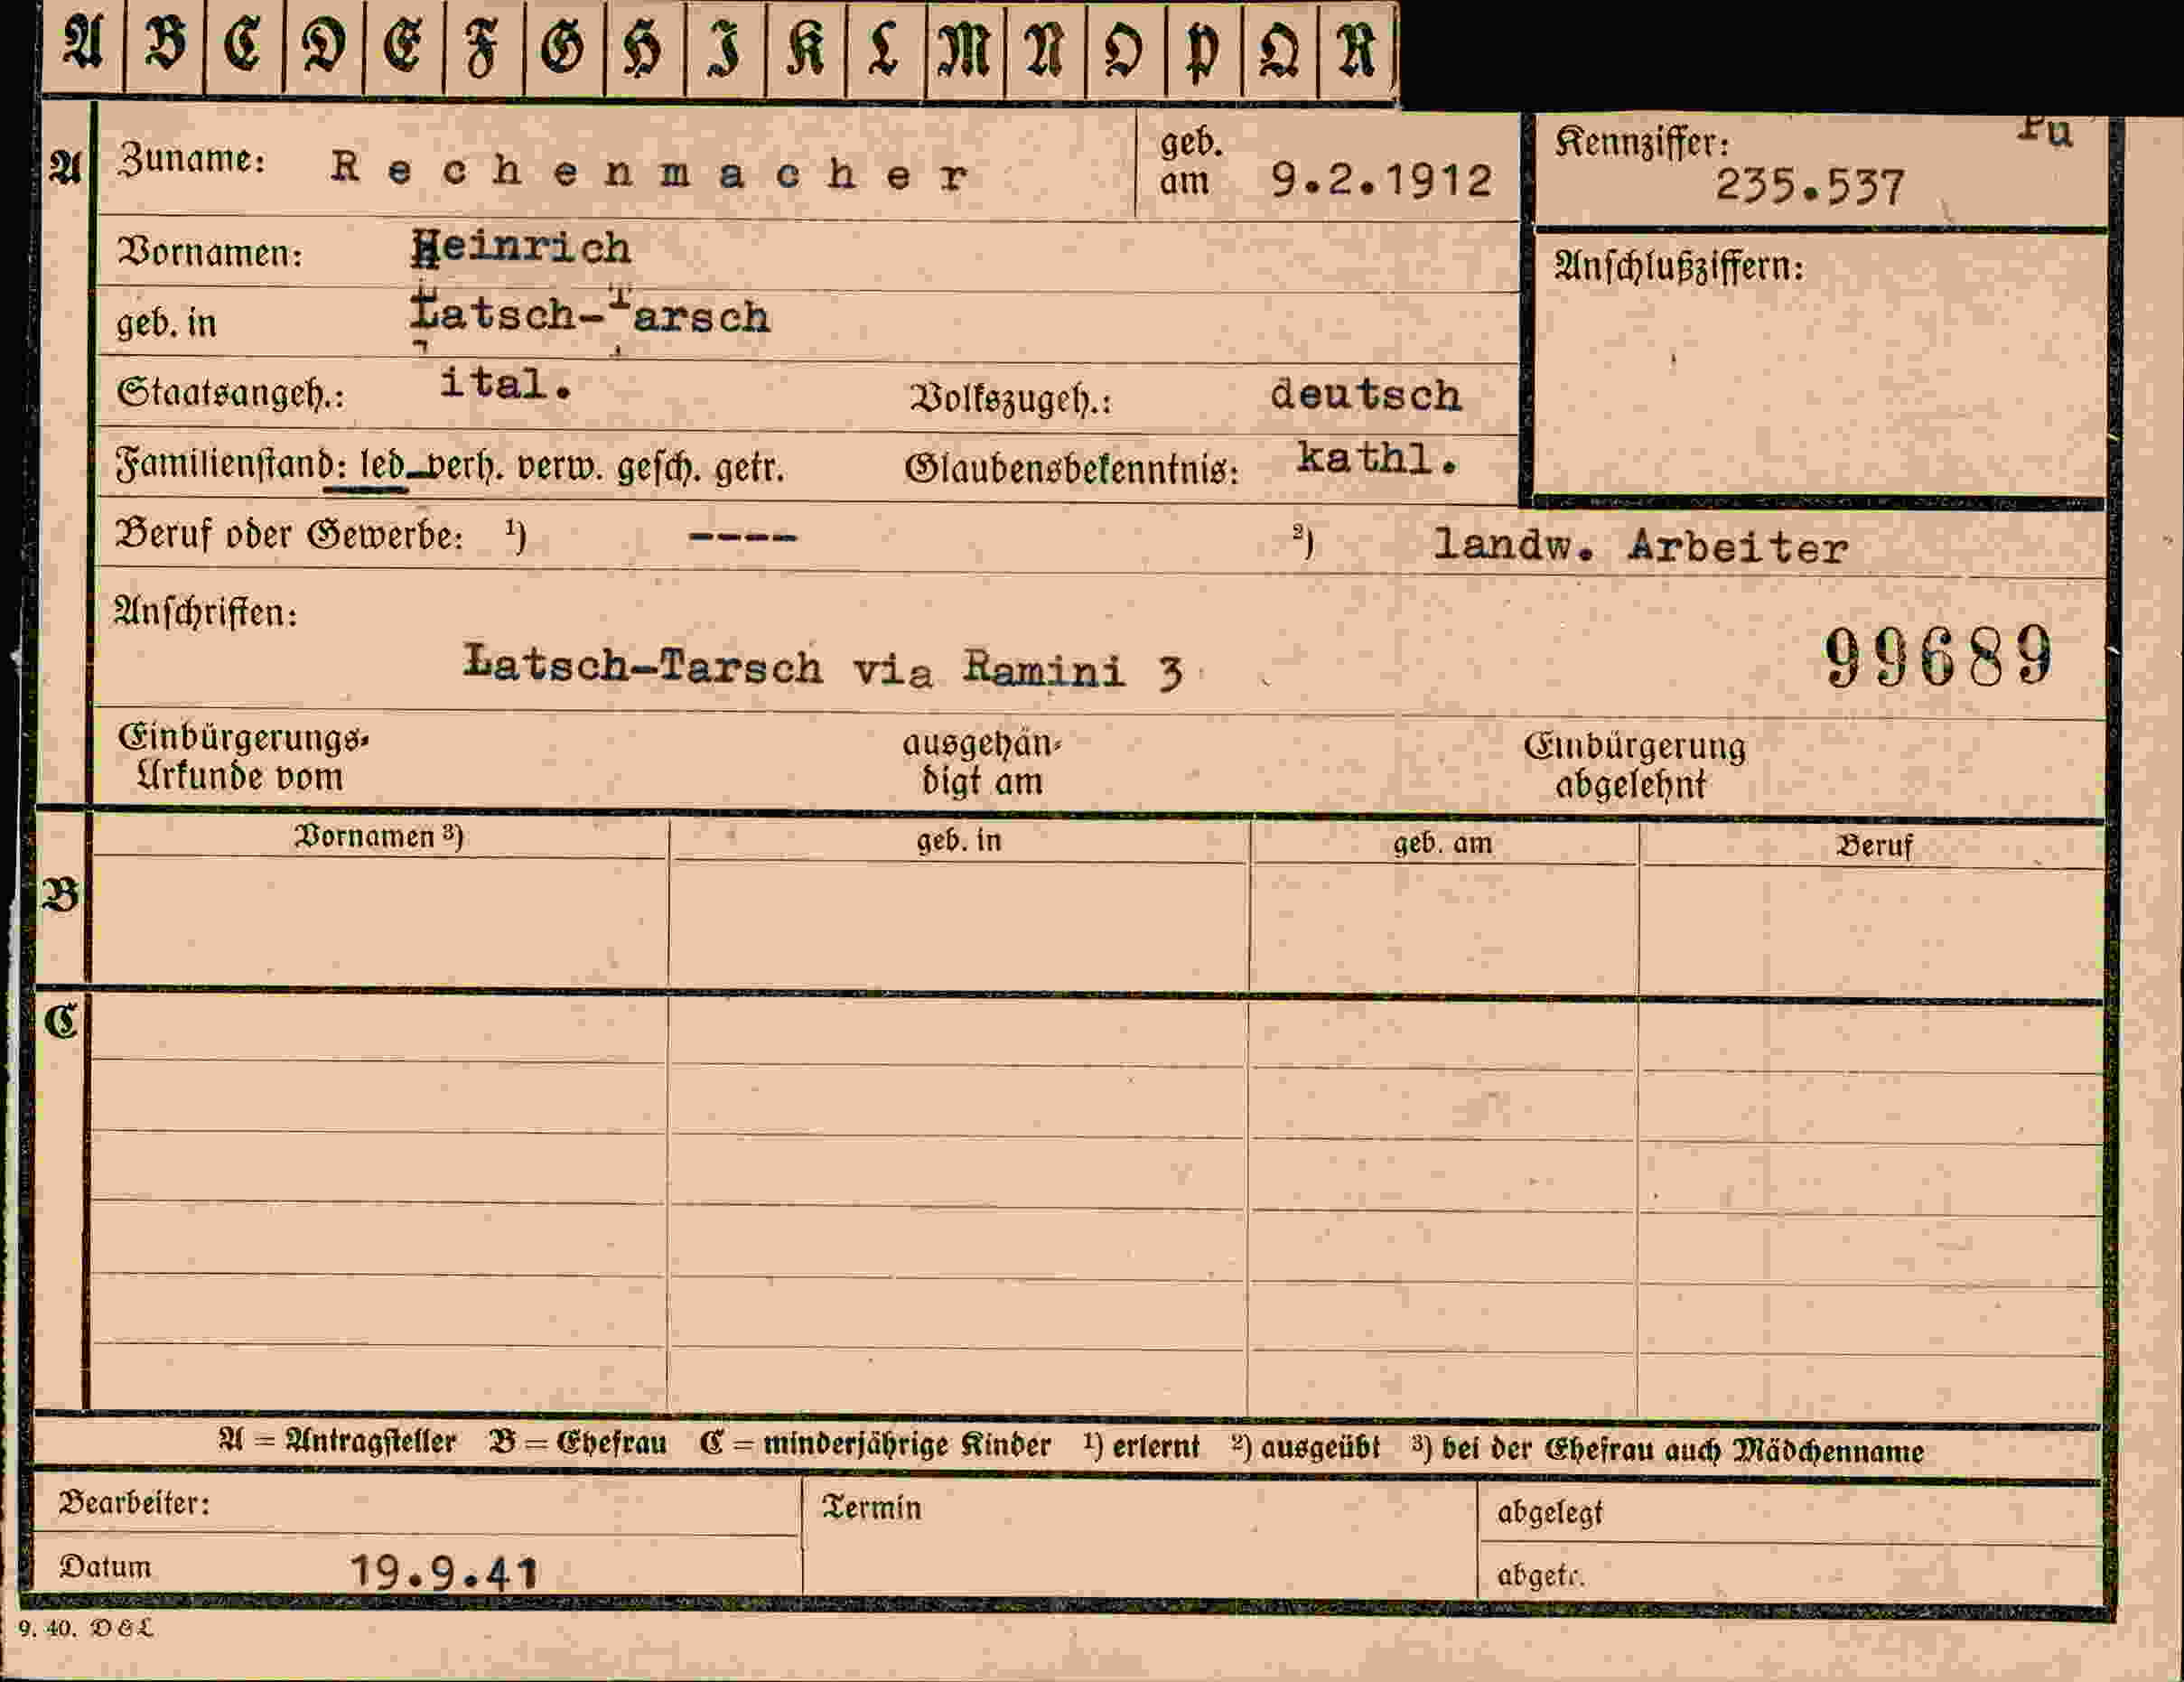 A B C D E F G H I K L M N O P Q R
A Zuname: Rechenmacher geb. am 9.2.1912 Kennziffer: 235.537
Vornamen: Heinrich Anschlußziffern:
geb. in Latsch-Tarsch
Staatsangeh.: ital. Volkszugeh.: deutsch
Familienstand: led verh. verw. gesch. getr. Glaubensbekenntnis: kathl.
Beruf oder Gewerbe: 1) ---- 2) landw. Arbeiter
Anschriften:
Latsch-Tarsch via Ramini 3 99689
Einbürgerungs- ausgehän- Einbürgerung
Urkunde vom digt am abgelehnt
Vornamen 3) geb. in geb. am Beruf
B
C
A = Antragsteller B = Ehefrau C = minderjährige Kinder 1) erlernt 2) ausgeübt 3) bei der Ehefrau auch Mädchenname
Bearbeiter: Termin abgelegt
Datum 19.9.41 abgetr.
9. 40. D & L